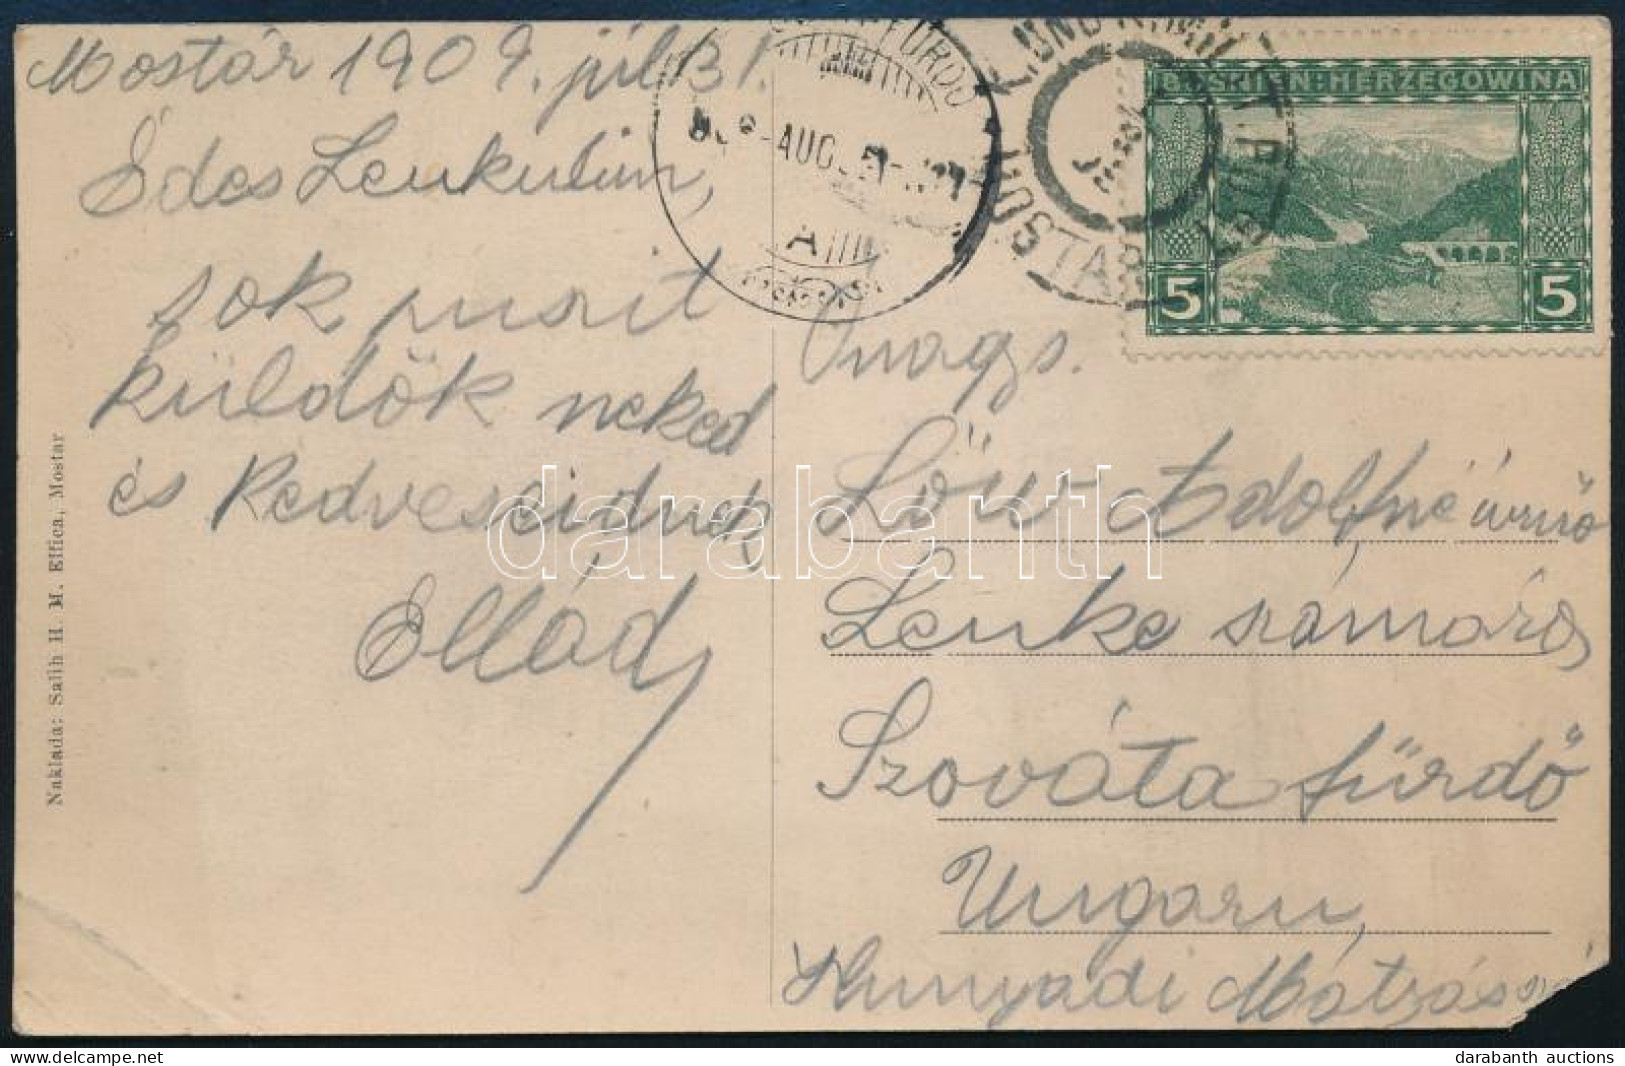 Mostár 1909. júl. 31.
Édes Lenkulim,
sok puszit
küldök neked
és kedveseidnek
Ellád
Naklada: Salih H. M. Effica, Mostar
FÜRDŐ
AUG.
A
MOSTAR
BOSNIEN-HERZEGOWINA
5 5
Őnags.
Löw Adolfné úrnő
Lenke számára
Szováta fürdő
Ungarn,
Hunyadi Mátyás
darabanth
darabanth auctions